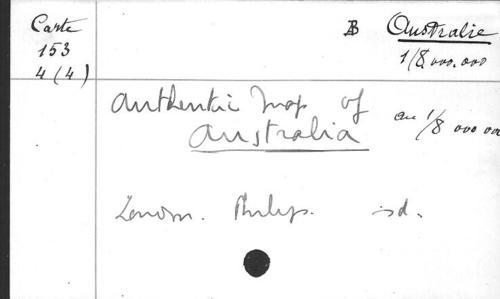 Carte
153
4 (4)
B Australie
1/8.000.000
Authentic Map of
Australia
au 1/8 000 00
London. Philips. sd.